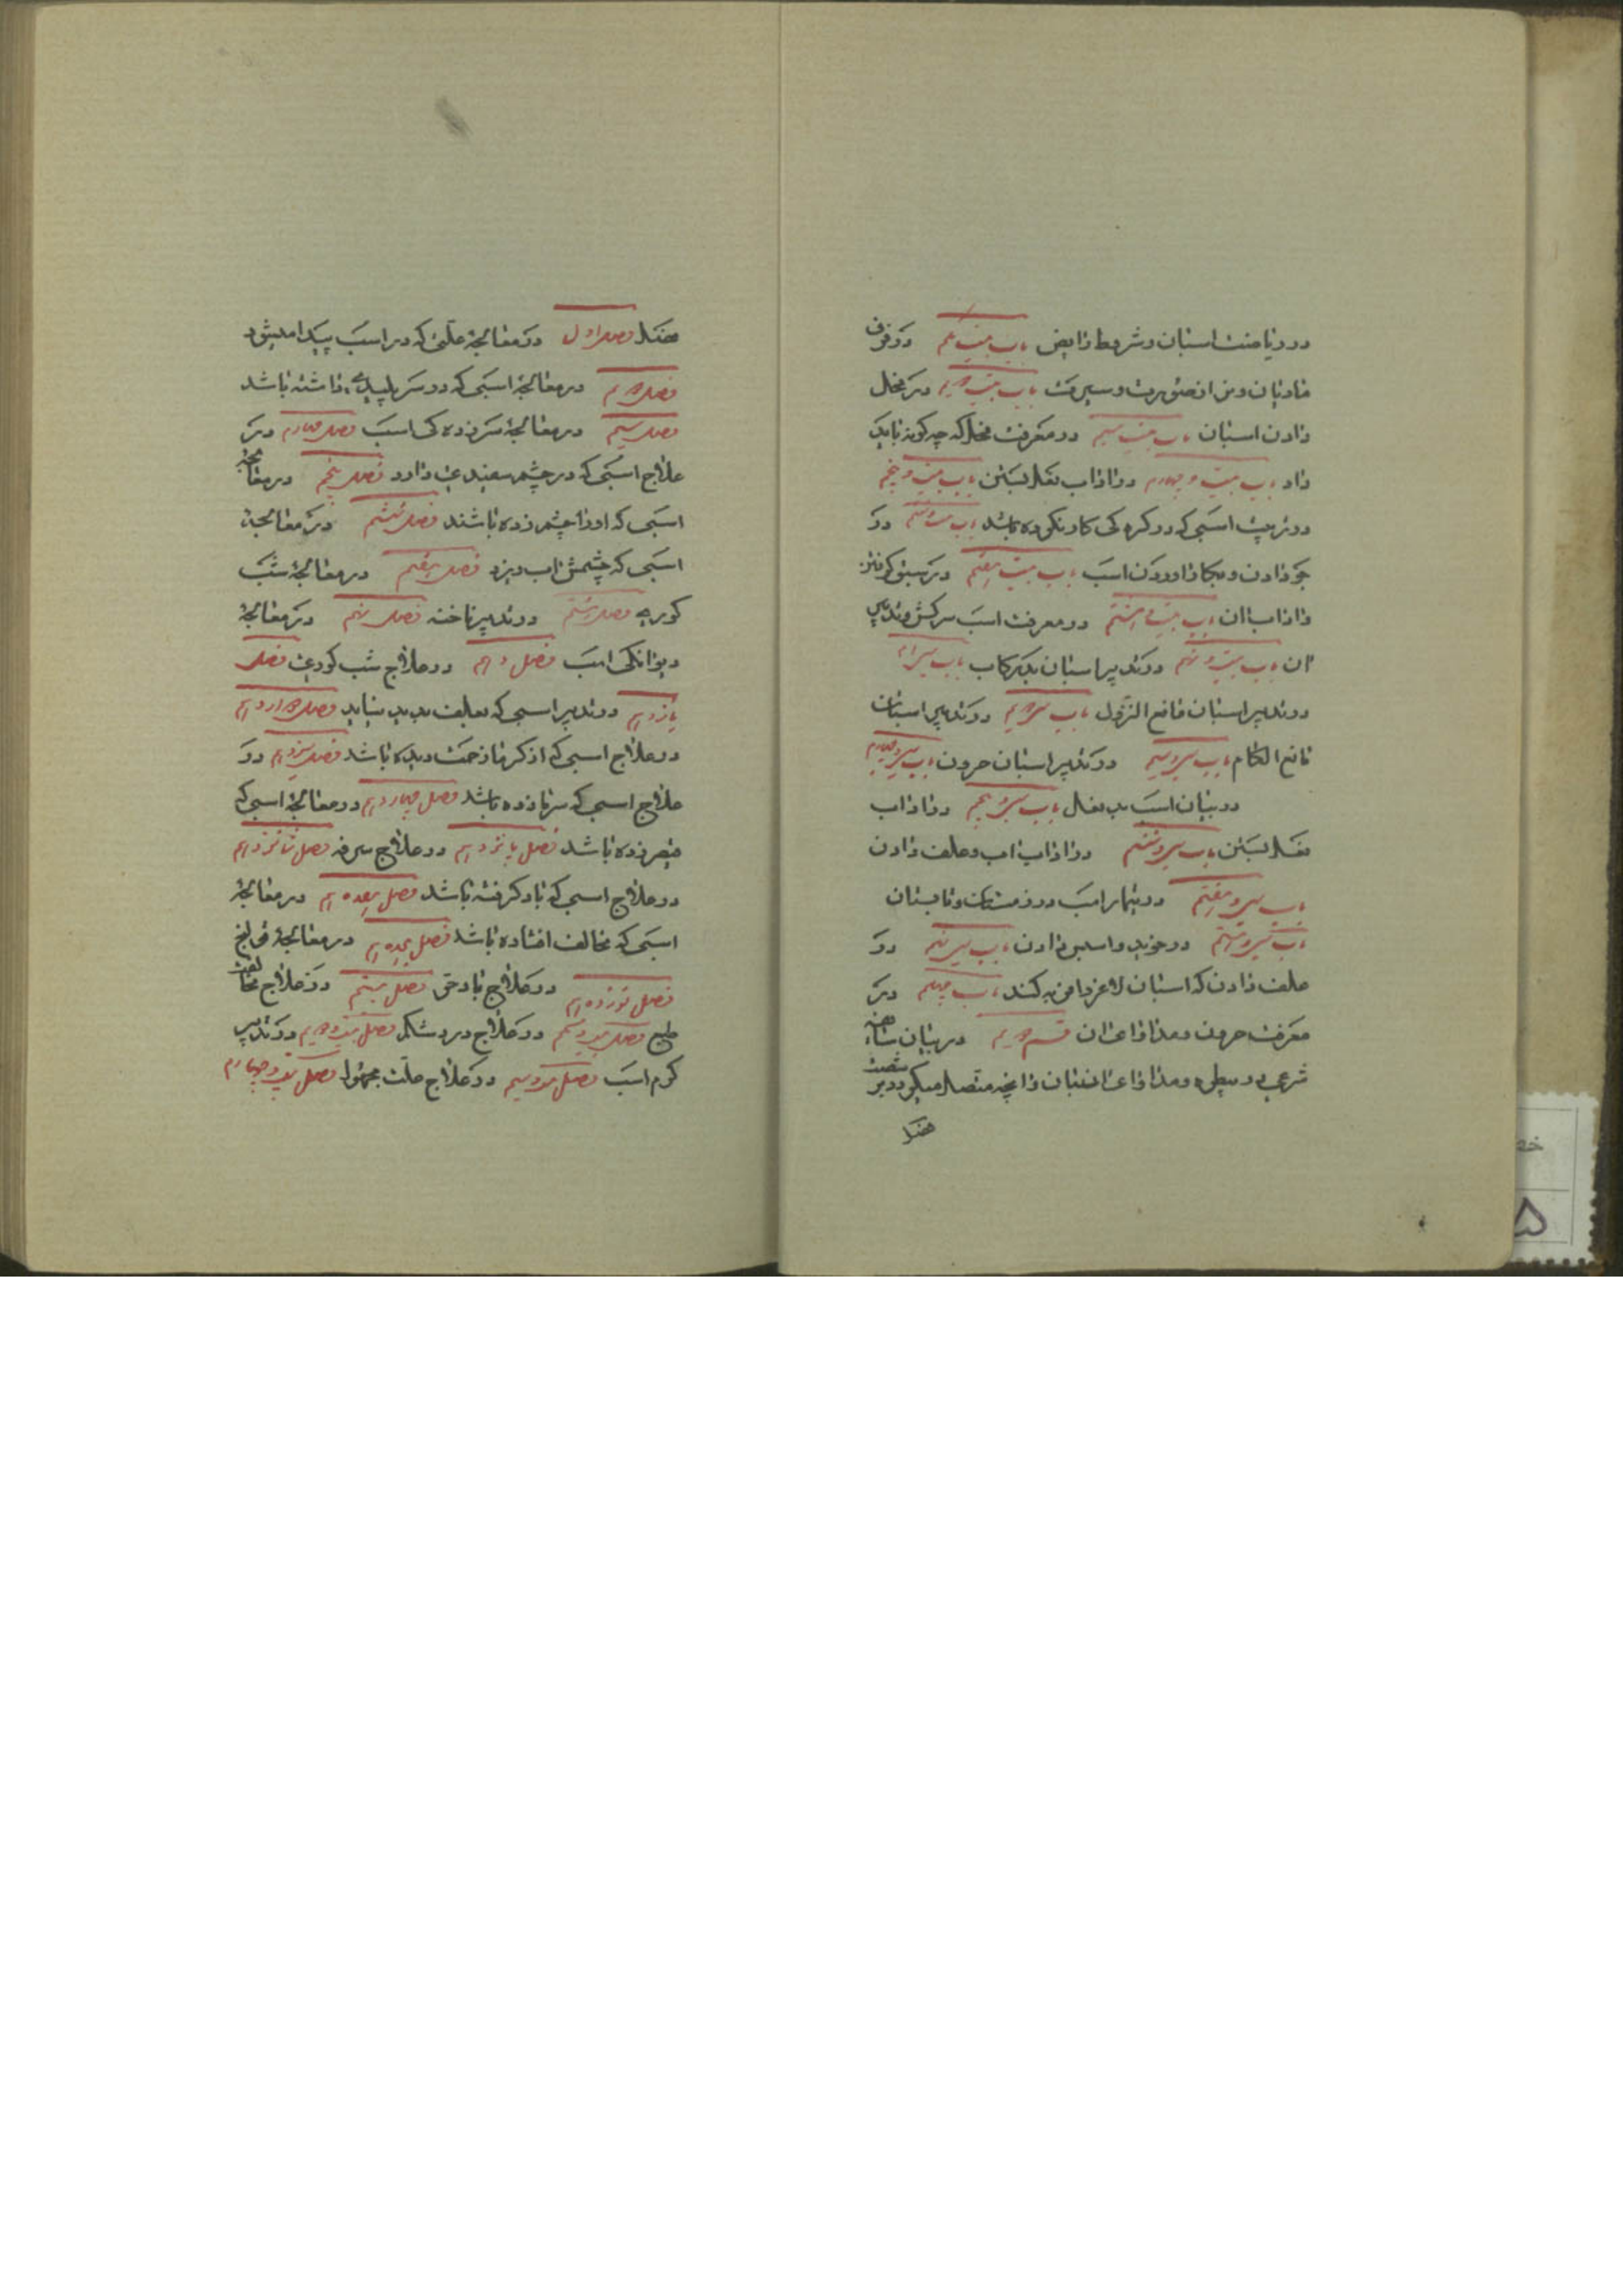 در ریاضت اسبان و شروط رایض باب بیست یکم در فرق
مادیان و نر از صورت و سیرت باب بیست دویم در فحل
دادن اسبان باب بیست سیم در معرفت فحل که چه کونه باید
داد باب بیست و چهارم در اداب نعل بستن باب بیست و پنجم
در تربیت اسبی که در کره کی کار نکرده باشد باب بیست و ششم در
جو دادن و بجکا اوردن اسب باب بیست هفتم در سبق کرفتن
و اداب ان باب بیست و هشتم در معرفت اسب سرکش و تدبیر
ان باب بیست و نهم در تدبیر اسبان بد رکاب باب سی ام
در تدبیر اسبان مانع النزول باب سی و دویم در تدبیر اسبان
مانع اللجام باب سی و سیم در تدبیر اسبان حرون باب سی و چهارم
در بیان اسب بد نعال باب سی و پنجم در اداب
نعل بستن باب سی و ششم در اداب اب و علف دادن
باب سی و هفتم در تیمار اسب در زمستان و تابستان
باب سی و هشتم در خوید و اسپس دادن باب سی و نهم در
علف دادن که اسبان لاغر را فربه کند باب چهلم در
معرفت حرون و مداوای ان قسم دویم در بیان
شرعی و بیطری و مداوای ان بیان و انچه متصل میکردد بر شصت
فصل
فصل فصل اول در معالجهٔ علتی که در اسب پیدا میشود
فصل دویم در معالجهٔ اسبی که در سر پلیدی داشته باشد
فصل سیم در معالجهٔ سرفزده کی اسب فصل چهارم در
علاج اسبی که در چشم سفیدی دارد فصل پنجم در معالجهٔ
اسبی که او را چشم زده باشند فصل ششم در معالجهٔ
اسبی که چشمش اب ریزد فصل هفتم در معالجهٔ شب
کوری فصل هشتم در تدبیر ناخنه فصل نهم در معالجهٔ
دیوانکی اسب فصل دهم در علاج شب کوری فصل
یازدهم در تدبیر اسبی که علف بدید نیاید فصل دوازدهم
در علاج اسبی که از کرما زحمت دیده باشد فصل سیزدهم در
علاج اسبی که سرما زده باشد فصل چهاردهم در معالجهٔ اسبی که
باشد فصل پانزدهم در علاج سرفه فصل شانزدهم
در علاج اسبی که باد کرفته باشد فصل هفدهم در معالجهٔ
اسبی که مخالف افتاده باشد فصل هجدهم در معالجهٔ قولنج
فصل نوزدهم در علاج باد فصل بیستم در علاج مخالفت
طبع فصل بیست و یکم در علاج درد شکم فصل بیست و دویم در تدبیر
کرم اسب فصل بیست و سیم در علاج علت فصل بیست و چهارم